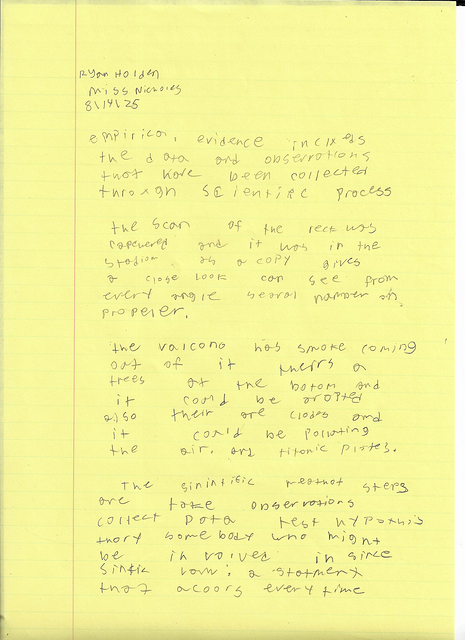 Ryan Holden
Miss Nicholes
8/14/25
empirical evidence inclxeds
the data and observations
that have been collected
through scientific process
the scan of the reck was
capenered and it was in the
stadiom as a copy gives
a close look can see from
every angle seoral namber on
propeler.
the valcono has smoke coming
out of it theirs a
trees at the botom and
it could be eropted
also their are clodes and
it could be polluting
the air. and titonic plates.
The sinintific steps
are take observations
collect Data test hypothis
thory some body who might
be in volved in since
sintic law: a statment
that acoors every time